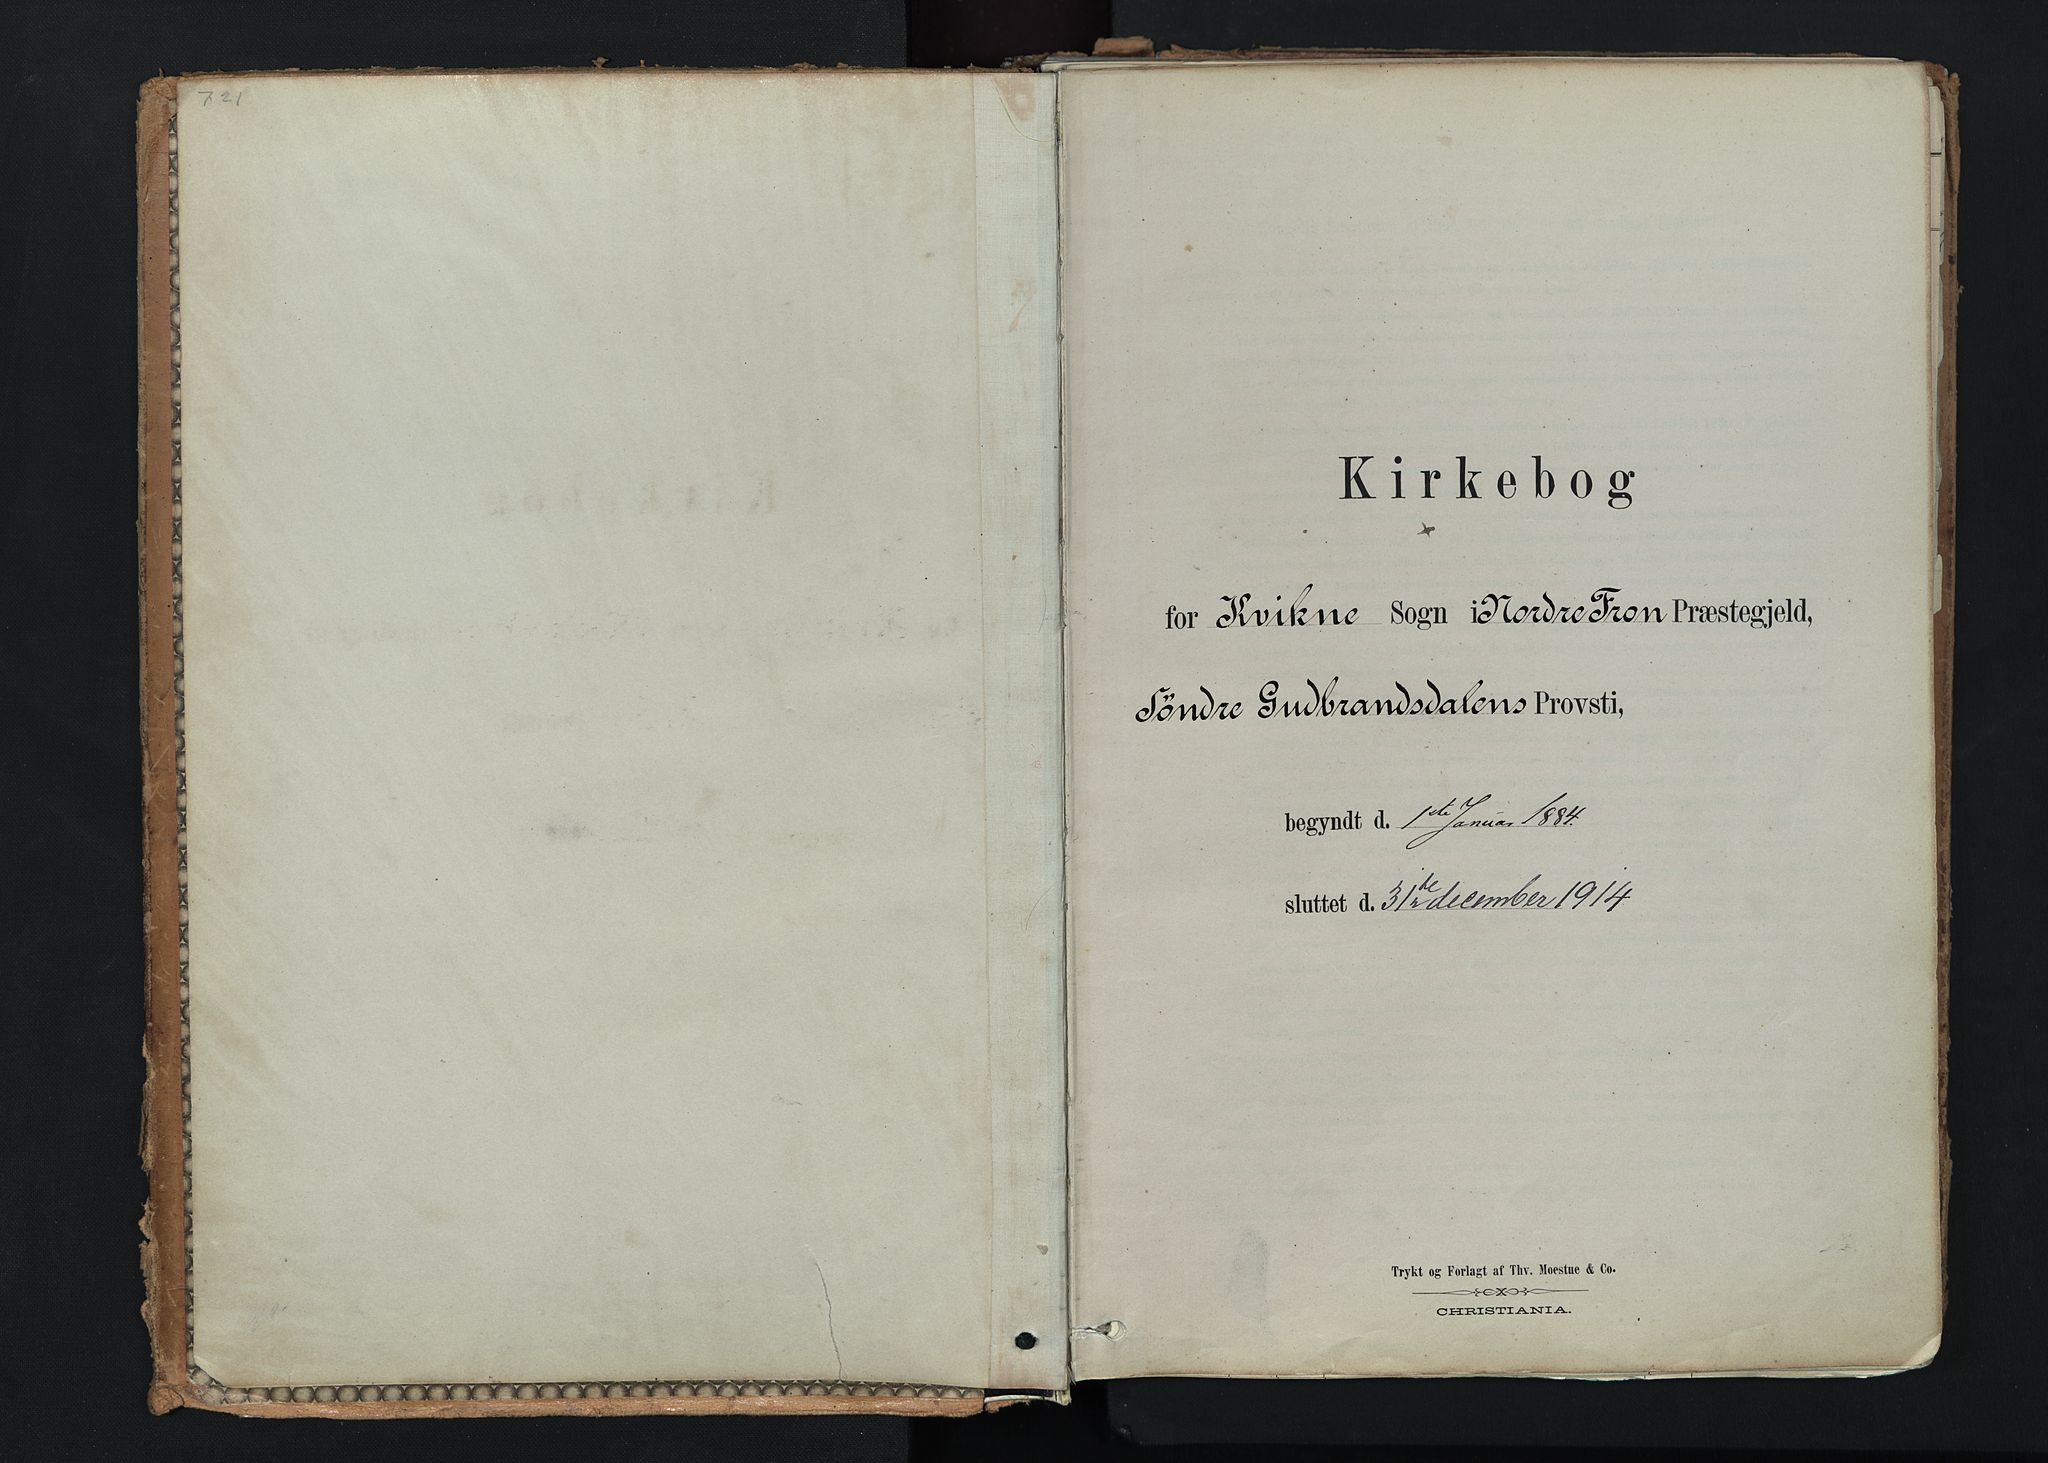 721
Kirkebog
for Kvikne Sogn i Nordre Fron Præstegjeld,
Söndre Gudbrandsdalens Provsti,
begyndt d. 1ste Januar 1884.
sluttet d. 31te december 1914
Trykt og Forlagt af Thv. Moestue & Co.
CHRISTIANIA.